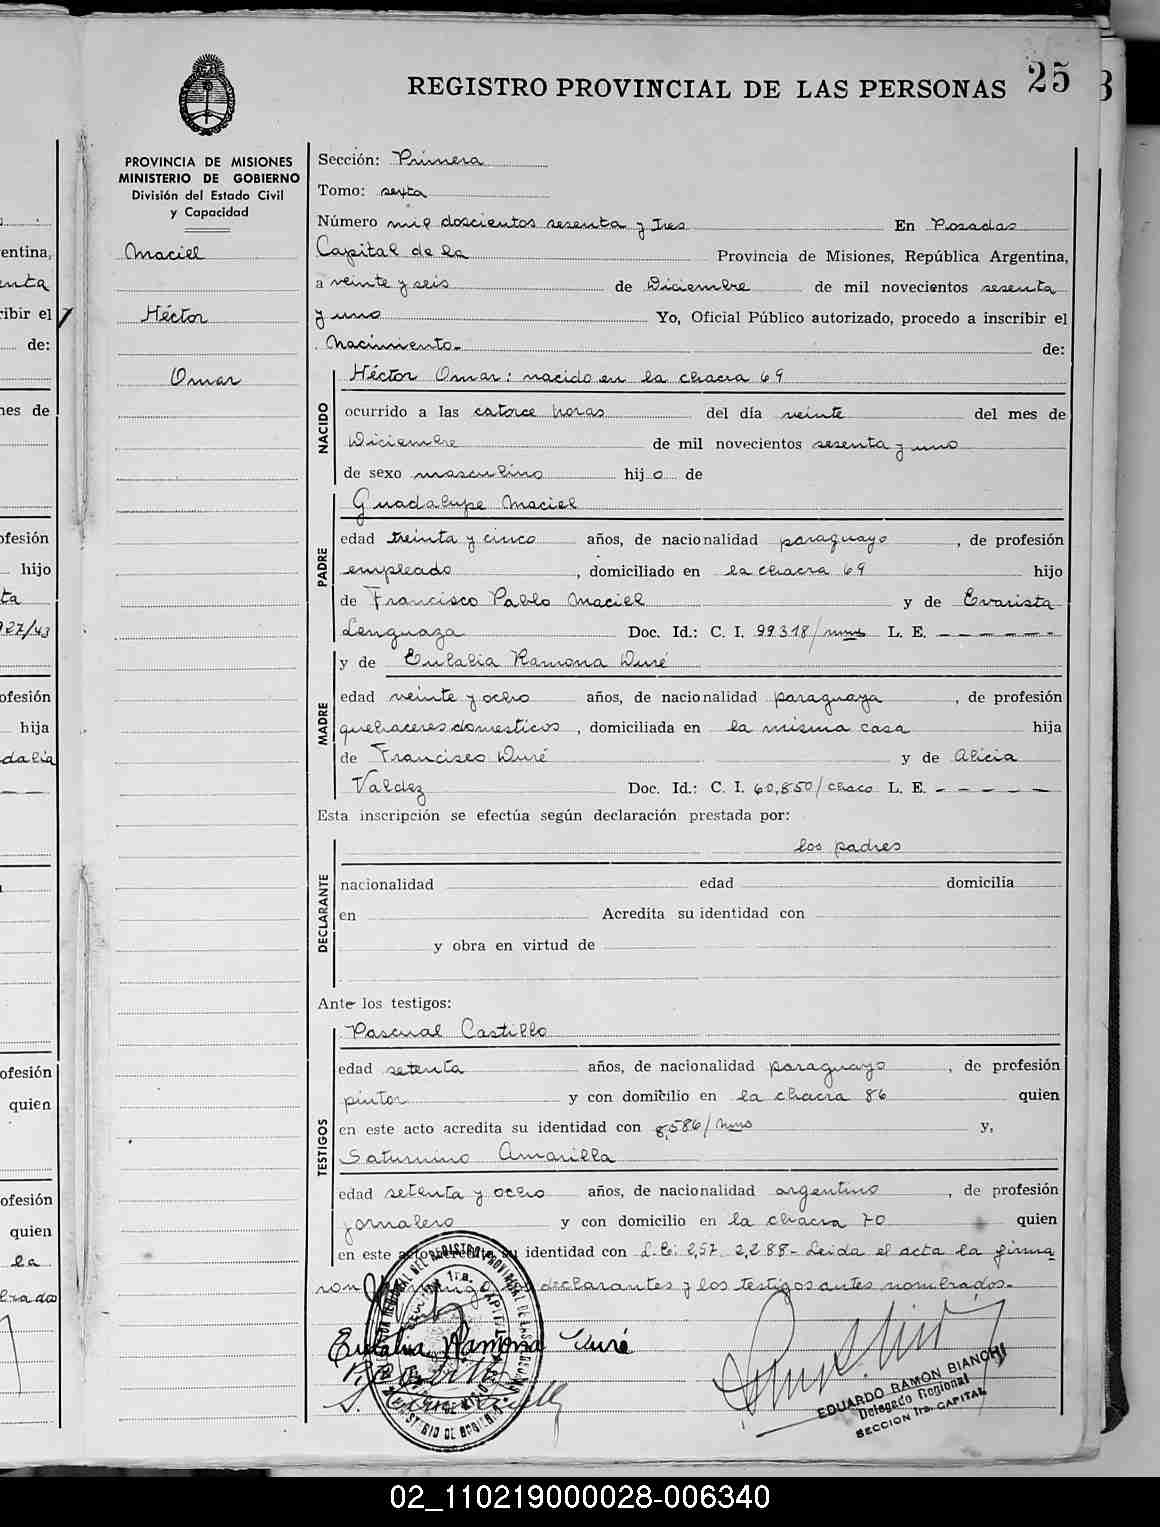 REGISTRO PROVINCIAL DE LAS PERSONAS 25
PROVINCIA DE MISIONES
MINISTERIO DE GOBIERNO
División del Estado Civil
y Capacidad
Maciel
Héctor
Omar
Sección: Primera
Tomo: sexta
Número mil doscientos sesenta y tres En Posadas
Capital de la Provincia de Misiones, República Argentina,
a veinte y seis de Diciembre de mil novecientos sesenta
y uno Yo, Oficial Público autorizado, procedo a inscribir el
Nacimiento.- de:
NACIDO
Héctor Omar: nacido en la chacra 69
ocurrido a las catorce horas del día veinte del mes de
Diciembre de mil novecientos sesenta y uno
de sexo masculino hijo de
PADRE
Guadalupe Maciel
edad treinta y cinco años, de nacionalidad paraguayo, de profesión
empleado, domiciliado en la chacra 69 hijo
de Francisco Pablo Maciel y de Evarista
Lenguaza Doc. Id.: C. I. 99318/mnes L. E. - - - - - -
MADRE
y de Eulalia Ramona Duré
edad veinte y ocho años, de nacionalidad paraguaya, de profesión
quehaceres domesticos, domiciliada en la misma casa hija
de Francisco Duré y de Alicia
Valdez Doc. Id.: C. I. 60,850/chaco L. E. - - - - -
Esta inscripción se efectúa según declaración prestada por:
DECLARANTE
los padres
nacionalidad edad domicilia
en Acredita su identidad con
y obra en virtud de
Ante los testigos:
TESTIGOS
Pascual Castillo
edad setenta años, de nacionalidad paraguayo, de profesión
pintor y con domicilio en la chacra 86 quien
en este acto acredita su identidad con 8,586/mnes y,
Saturnino Amarilla
edad setenta y ocho años, de nacionalidad argentino, de profesión
jornalero y con domicilio en la chacra 70 quien
en este acto acredita su identidad con L.E: 2,57 2,288- Leida el acta la firma
ron declarantes y los testigos antes nombrados.-
Eulalia Ramona Duré
EDUARDO RAMON BIANCHI
Delegado Regional
SECCION 1ra. CAPITAL
02_110219000028-006340